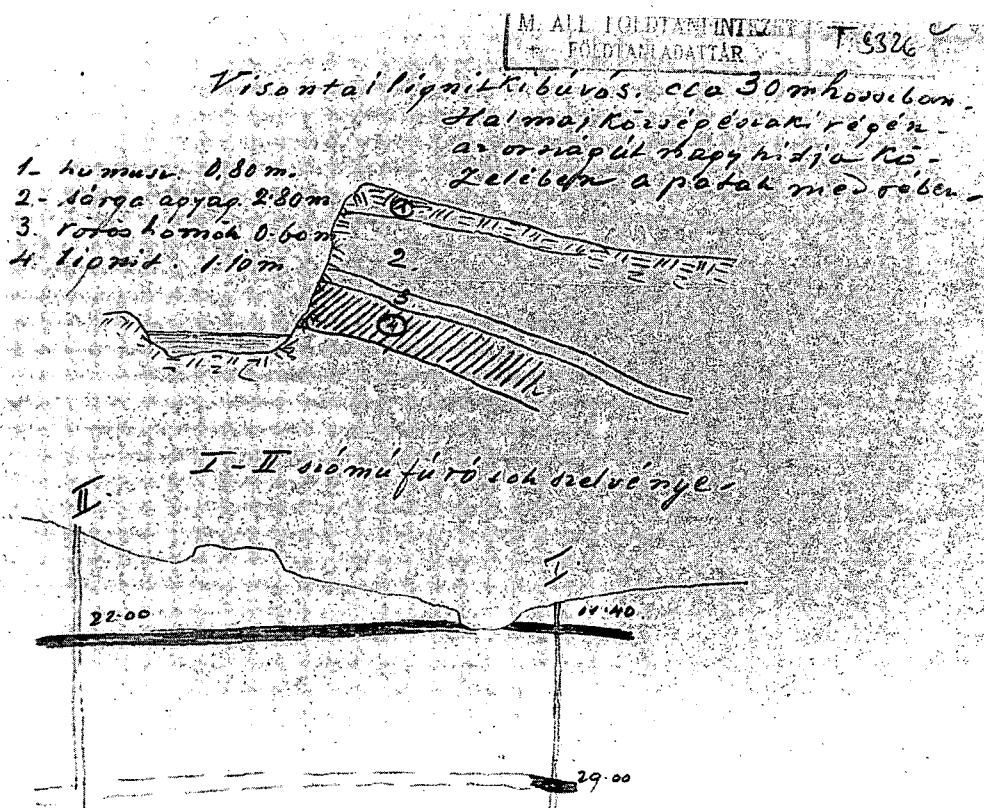 M. ÁLL. FÖLDTANI INTÉZET
FÖLDTANI ADATTÁR
T 9326
Visontai lignitkibúvás. cca 30 m hosszban.
Halmaj község északi végén
az országút nagy hídja kö-
zelében a patak medrében
1- humusz. 0,80 m.
2- sárga agyag. 2.80 m
3. vörös homok 0.60 m
4. lignit. 1.10 m
1
2.
3
4
I-II számú fúrások szelvénye
II.
I.
22.00
29.00